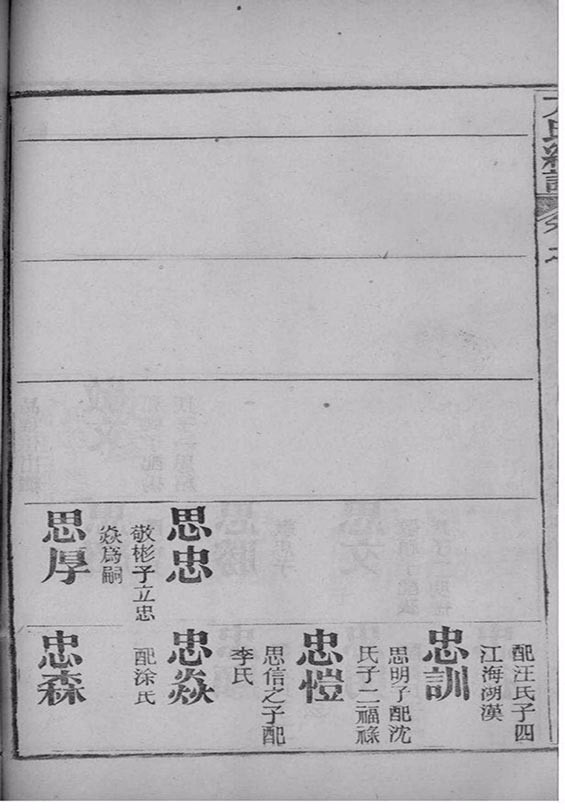 思忠
敬彬子立忠
焱爲嗣
思厚
配汪氏子四
江海湖漢
忠訓
思明子配沈
氏子二福祿
忠愷
思信之子配
李氏
忠焱
配涂氏
忠森